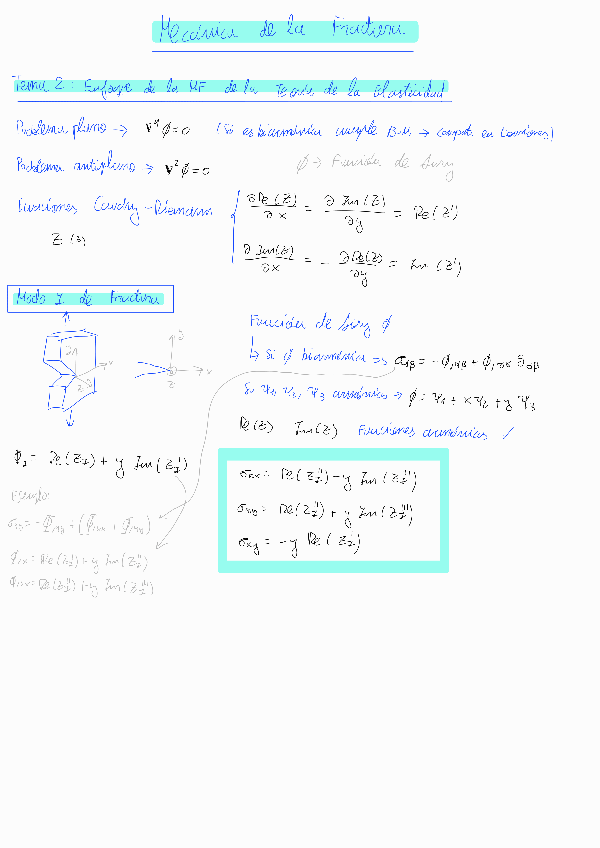 Mecánica de la Fractura
Tema 2: Enfoque de la MF de la Teoría de la elasticidad
Problema plano → ∇⁴ϕ=0 (Si es biarmónica cumple B.M. → compat. en tensiones)
Problema antiplano → ∇²ϕ=0 ϕ → Función de Airy
Funciones Cauchy-Riemann
Z(z)
∂Re(Z)/∂x = ∂Im(Z)/∂y = Re(Z')
∂Im(Z)/∂x = -∂Re(Z)/∂y = Im(Z')
Modo I de Fractura
Función de Airy ϕ
↳ Si ϕ biarmónica => σαβ = -ϕ,αβ + ϕ,γγ δαβ
Si ψ1, ψ2, ψ3 armónicas → ϕ = ψ1 + xψ2 + yψ3
Re(Z) Im(Z) Funciones armónicas /
x
y
x
z
ΦI = Re(ZI) + y Im(ZI')
σxx = Re(ZI'') - y Im(ZI''')
σyy = Re(ZI'') + y Im(ZI''')
σxy = -y Re(ZI''')
Φ,x = Re(ZI') + y Im(ZI'')
Φ,xx = Re(ZI'') + y Im(ZI''')